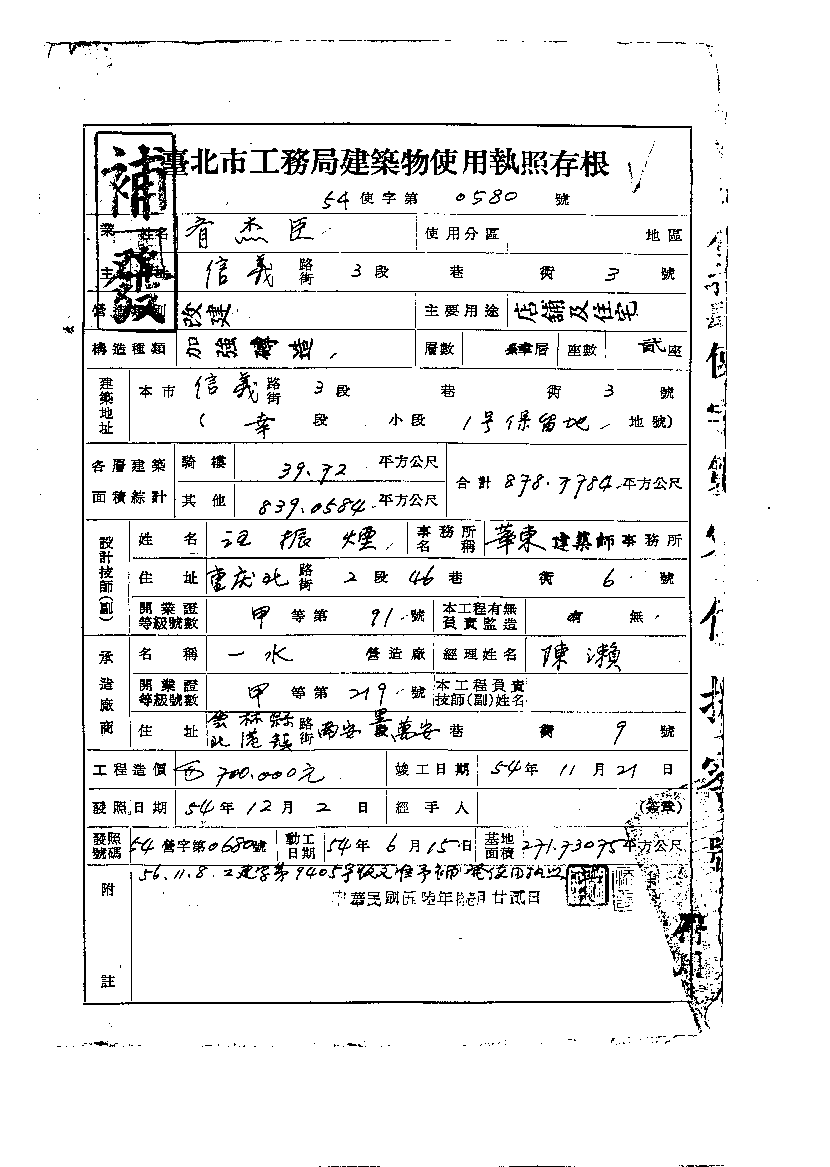 補發
臺北市工務局建築物使用執照存根
54 使字第 0580 號
業 姓名 肴杰臣 使用分區 地區
主 信義 路街 3 段 巷 衖 3 號
改建 主要用途 店舖及住宅
構造種類 加強磚造 層數 層 座數 貳座
建築地址 本市 信義 路街 3 段 巷 衖 3 號
( 幸 段 小段 1号保留地 地號)
各層建築面積綜計 騎樓 39.72 平方公尺 合計 878.7784 平方公尺
其他 839.0584 平方公尺
設計技師(副) 姓名 汪振煙 事務所名稱 華東建築師事務所
住址 重庆北 路街 2 段 46 巷 衖 6 號
開業證等級號數 甲 等第 91 號 本工程有無負責監造 有 無
承造廠商 名稱 一水 營造廠 經理姓名 陳瀨
開業證等級號數 甲 等第 219 號 本工程負責技師(副)姓名
住址 雲林縣北港鎮 路街 萬安 巷 衖 9 號
工程造價 700.000元 竣工日期 54年 11月 21日
發照日期 54年 12月 2日 經手人 (簽章)
發照號碼 54 營字第 0680 號 動工日期 54年 6月 15日 基地面積 271.73075 平方公尺
附註 56.11.8.工建字第9405号
中華民國伍陸年 月廿貳日